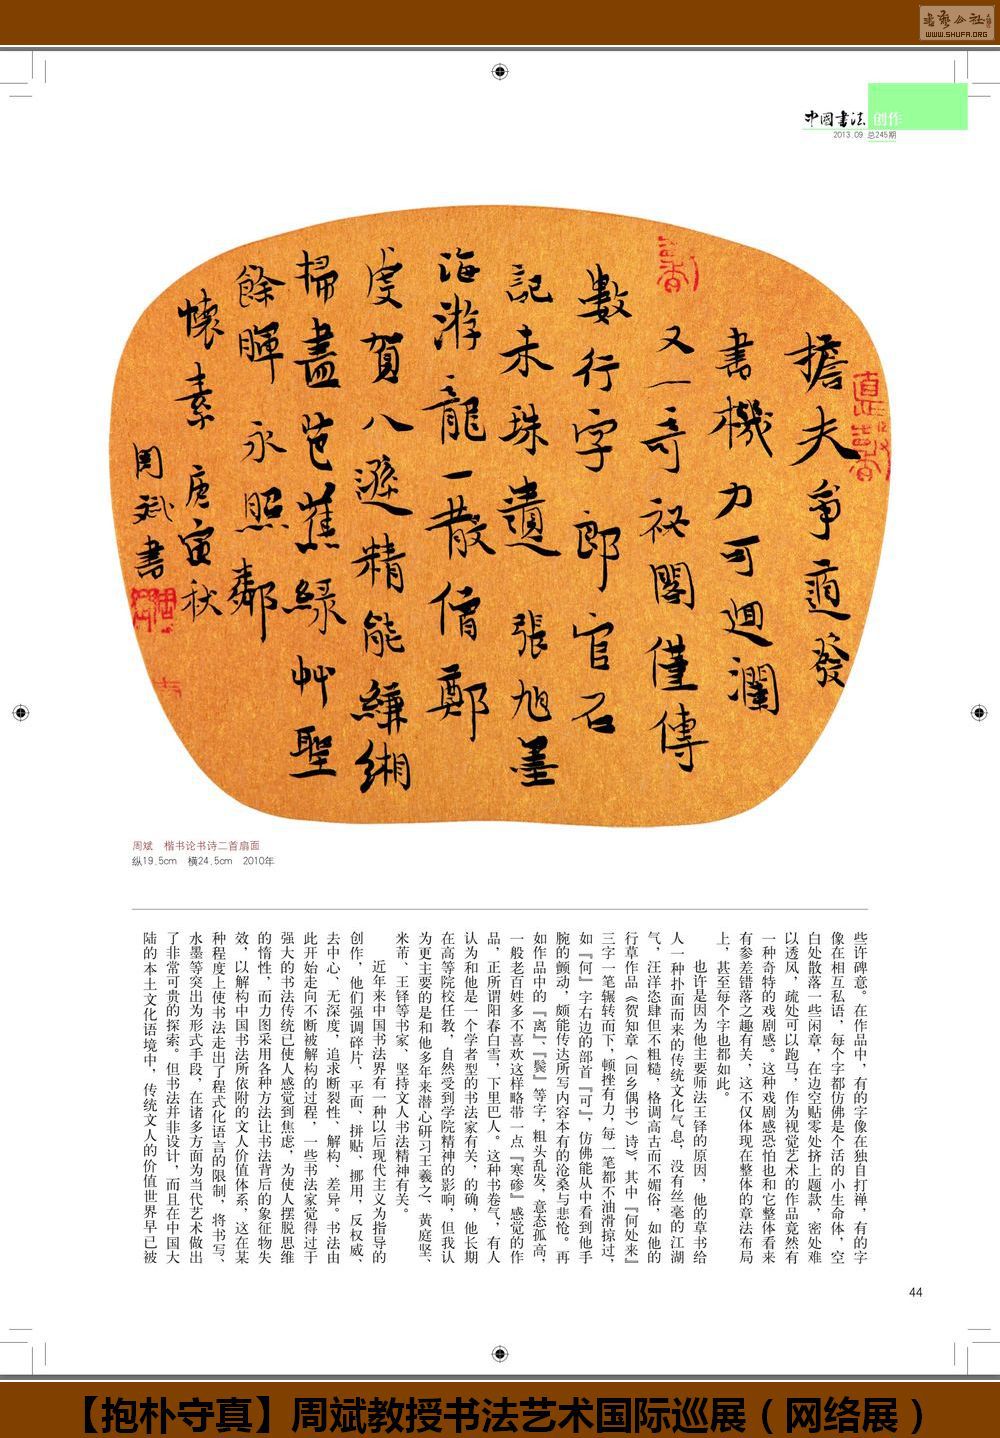 書藝公社
WWW.SHUFA.ORG
中國書法 创作
2013.09 总245期
擔夫爭道發
書機力可迴瀾
又一奇祕閣僅傳
數行字郎官石
記未珠遺 張旭墨
海游龍一散僧鄭
虔賀八遜精能縑緗
掃盡芭蕉綠艸聖
餘暉永照鄰
懷素 庚寅秋
周斌書
周斌 楷书论书诗二首扇面
纵19.5cm 横24.5cm 2010年
些许碑意。在作品中，有的字像在独自打禅，有的字
像在相互私语，每个字都仿佛是个活的小生命体，空
白处散落一些闲章，在边空贴零处挤上题款，密处难
以透风，疏处可以跑马，作为视觉艺术的作品竟然有
一种奇特的戏剧感。这种戏剧感恐怕也和它整体看来
有参差错落之趣有关，这不仅体现在整体的章法布局
上，甚至每个字也都如此。
也许是因为他主要师法王铎的原因，他的草书给
人一种扑面而来的传统文化气息，没有丝毫的江湖
气，汪洋恣肆但不粗糙，格调高古而不媚俗，如他的
行草作品《贺知章〈回乡偶书〉诗》，其中『何处来』
三字一笔辗转而下，顿挫有力，每一笔都不油滑掠过，
如『何』字右边的部首『可』，仿佛能从中看到他手
腕的颤动，颇能传达所写内容本有的沧桑与悲怆。再
如作品中的『离』、『鬓』等字，粗头乱发，意态孤高，
一般老百姓多不喜欢这样略带一点『寒碜』感觉的作
品，正所谓阳春白雪，下里巴人。这种书卷气，有人
认为和他是一个学者型的书法家有关，的确，他长期
在高等院校任教，自然受到学院精神的影响，但我认
为更主要的是和他多年来潜心研习王羲之、黄庭坚、
米芾、王铎等书家、坚持文人书法精神有关。
近年来中国书法界有一种以后现代主义为指导的
创作，他们强调碎片、平面、拼贴、挪用，反权威、
去中心、无深度，追求断裂性、解构、差异。书法由
此开始走向不断被解构的过程，一些书法家觉得过于
强大的书法传统已使人感觉到焦虑，为使人摆脱思维
的惰性，而力图采用各种方法让书法背后的象征物失
效，以解构中国书法所依附的文人价值体系，这在某
种程度上使书法走出了程式化语言的限制，将书写、
水墨等突出为形式手段，在诸多方面为当代艺术做出
了非常可贵的探索。但书法并非设计，而且在中国大
陆的本土文化语境中，传统文人的价值世界早已被
44
【抱朴守真】周斌教授书法艺术国际巡展（网络展）